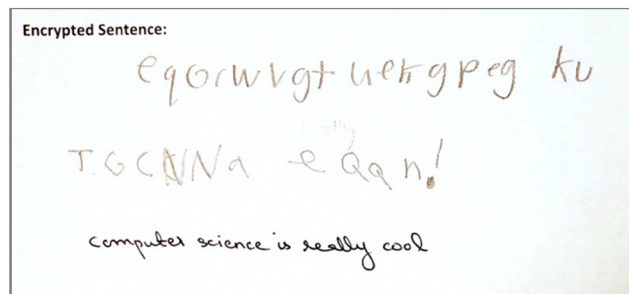 Encrypted Sentence:
eqorwvgt uekgpeg ku
TGCNNa eQqn!
computer science is really cool